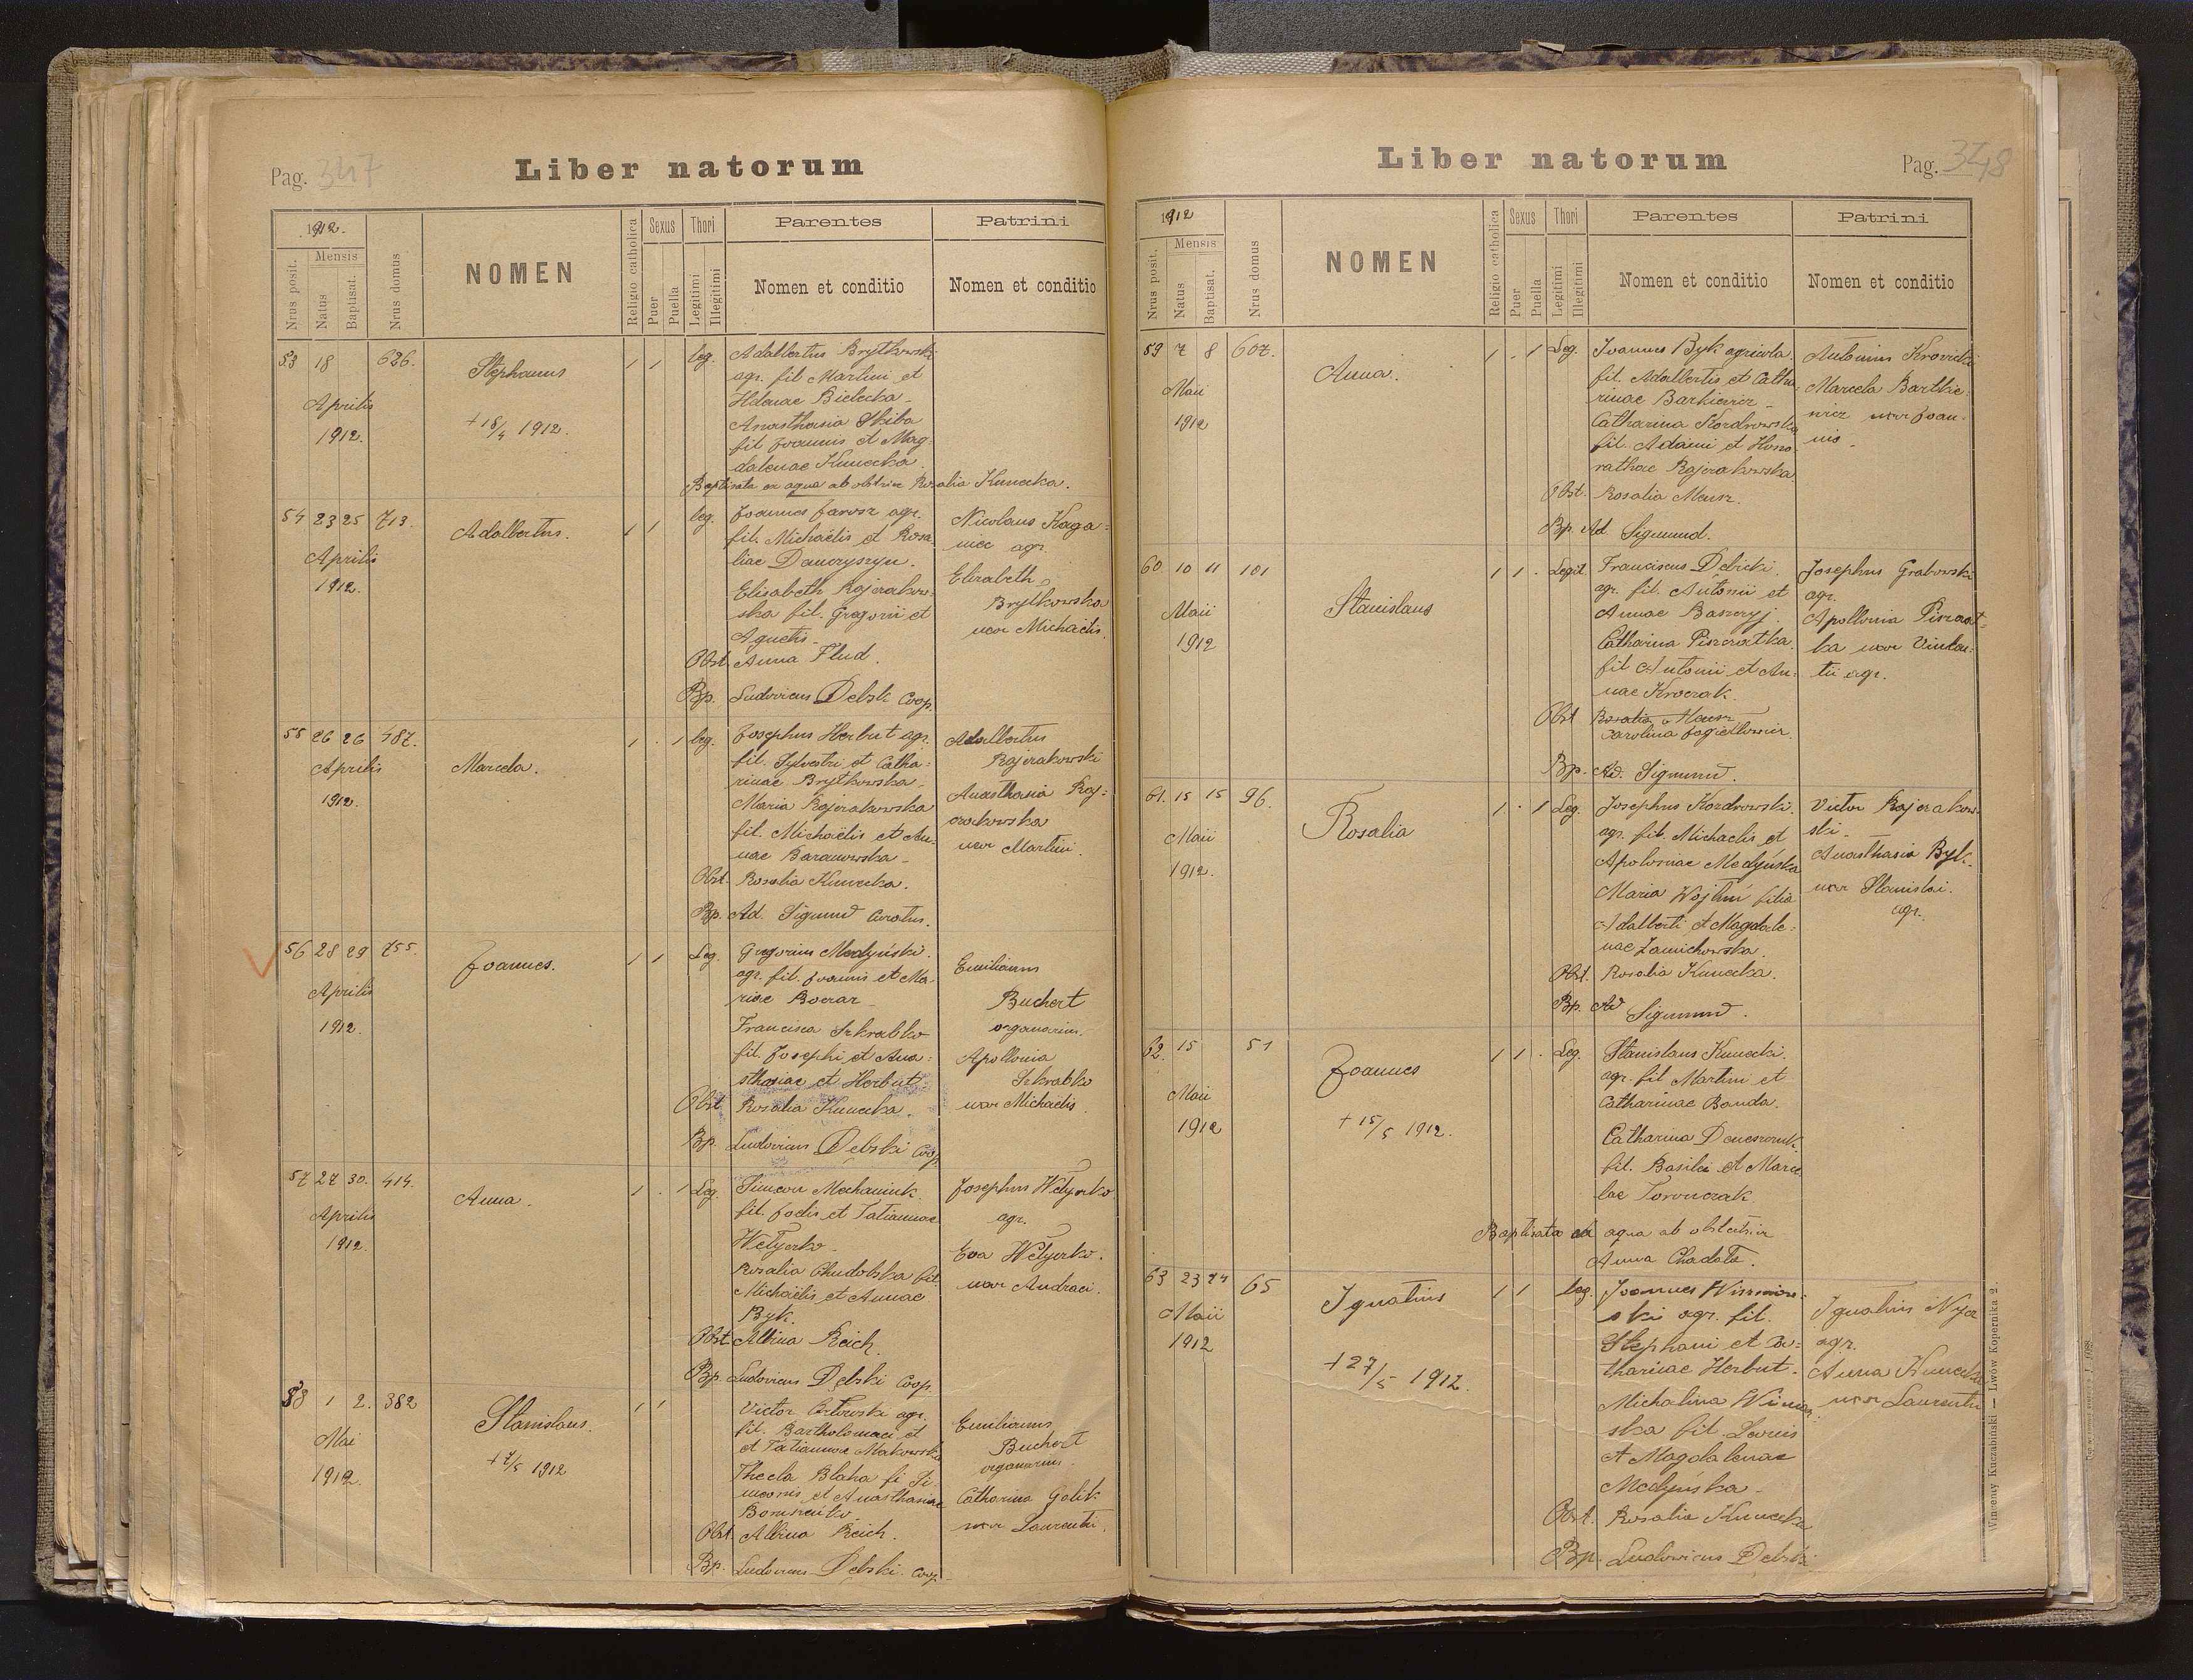 Pag. 347
Liber natorum
1912.
Nrus posit.
Mensis
Natus
Baptisat.
Nrus domus
NOMEN
Religio catholica
Sexus
Puer
Puella
Thori
Legitimi
Illegitimi
Parentes
Nomen et conditio
Patrini
Nomen et conditio
53 18 626.
Aprilis
1912.
Stephanus
+ 18/4 1912.
1 1 leg.
Adalbertus Brytkowski
agr. fil Martini et
Helenae Bielecka
Anasthasia Skiba
fil Joannis et Mag
dalenae Kunecka
Baptisata ex aqua ab obstrice Rosalia Kunecka.
54 23 25 713.
Aprilis
1912.
Adalbertus.
1 1 leg.
Joannes Jarosz agr.
fil. Michaëlis et Rosa
liae Dawryszyn.
Elisabeth Rajzrakow-
ska fil. Gregorii et
Agnetis
Obst. Anna Flud.
Bp. Ludovicus Debski Coop.
Nicolaus Kaga=
niec agr.
Elisabeth
Brytkowska
uxor Michaelis.
55 26 26 487.
Aprilis
1912.
Marcela.
1 . 1 leg.
Josephus Herbut agr.
fil. Sylvestri et Catha=
rinae Brytkowska
Maria Rajzrakowska
fil. Michaëlis et An-
nae Baranowska
Obst. Rosalia Kunecka.
Bp. Ad. Sigmund Curatus.
Adalbertus
Rajzrakowski
Anasthasia Raj=
zrakowska
uxor Martini.
56 28 29 755.
Aprilis
1912.
Joannes.
1 1 Leg.
Gregorius Medyński.
agr. fil. Joannis et Ma-
riae Boczar
Francisca Szkrabko
fil. Josephi et Ana=
sthasiae et Herbut
Obst. Rosalia Kunecka.
Bp. Ludovicus Debski Coop.
Emilianus
Buchert
organarius.
Apollonia
Szkrabko
uxor Michaelis.
57 27 30. 414.
Aprilis
1912.
Anna.
1 . 1 Leg.
Simeon Mechaniuk
fil. Joelis et Tatiannae
Wetyczko
Rosalia Chudobska fil.
Michaëlis et Annae
Byk.
Obst. Albina Reich.
Bp. Ludovicus Dębski Coop.
Josephus Wetyczko
agr.
Eva Wetyczko.
uxor Andreae.
58 1 2. 382
Mai
1912.
Stanislaus.
+ 7/5 1912
1 1
Victor Ortowski agr.
fil. Bartholomaei et
et Tatiannae Makowska
Thecla Blaha fi Si-
meonis et Anasthasiae
Obst. Albina Reich.
Bp. Ludovicus Debski. Coop
Emilianus
Buchert
organarius.
Catharina Golik
uxor Laurentii.
Liber natorum
Pag. 348
1912
Nrus posit.
Mensis
Natus
Baptisat.
Nrus domus
NOMEN
Religio catholica
Sexus
Puer
Puella
Thori
Legitimi
Illegitimi
Parentes
Nomen et conditio
Patrini
Nomen et conditio
59 7 8 607.
Maii
1912
Anna.
1 . 1 Leg.
Joannes Byk agricola.
fil. Adalbertis et Catha-
rinae Barkiewicz
Catharina Kozdrowska
fil. Adami et Hono
rathae Rajzrakowska
Obst. Rosalia Mensz.
Bp. Ad Sigmund.
Antonius Krovicki
Marcela Bartkie-
wicz uxor Joan-
nis.
60 10 11 101
Maii
1912
Stanislaus
1 1 . Legit
Franciscus Debicki.
agr. fil. Antonii et
Annae Baszczyj.
Catharina Piszczatka.
fil Antonii et An-
nae Kroczak.
Obst Rosalia Mensz
Carolina Jagiełłowicz.
Bp. Ad. Sigmund.
Josephus Grabowski
agr.
Apollonia Piszczat
ka uxor Vincen=
tii agr.
61. 15 15 96.
Maii
1912.
Rosalia
1 . 1 Leg.
Josephus Kozdrowski.
agr. fil. Michaelis et
Apoloniae Medyńska
Maria Wojtuń filia
Adalberti et Magdale=
nae Zamichowska.
Obst. Rosalia Kunecka.
Bp. Ad Sigmund.
Victor Rajzrakow-
ski.
Anasthasia Byk.
uxor Stanislai.
agr.
62. 15 51
Maii
1912
Joannes
+ 15/5 1912.
1 1 . Leg.
Stanislaus Kunecki.
agr. fil Martini et
Catharinae Banda.
Catharina Deneszczuk
fil. Basilii et Marce
lae Toronczak
Baptisata ex aqua ab obstetrice
Anna Chadata.
63 23 24 65
Maii
1912
Ignatius
+ 27/5 1912.
1 1 leg.
Joannes Wiszniow-
ski agr. fil.
Stephani et Ca=
tharinae Herbut.
ska fil. Levis
et Magdalenae
Medyńska
Obst. Rosalia Kunecka
Bp. Ludowicus Debski
Ignatius Nycz
agr.
Anna Kunecka
uxor Laurentii
Wincenty Kuczabiński — Lwów Kopernika 2.